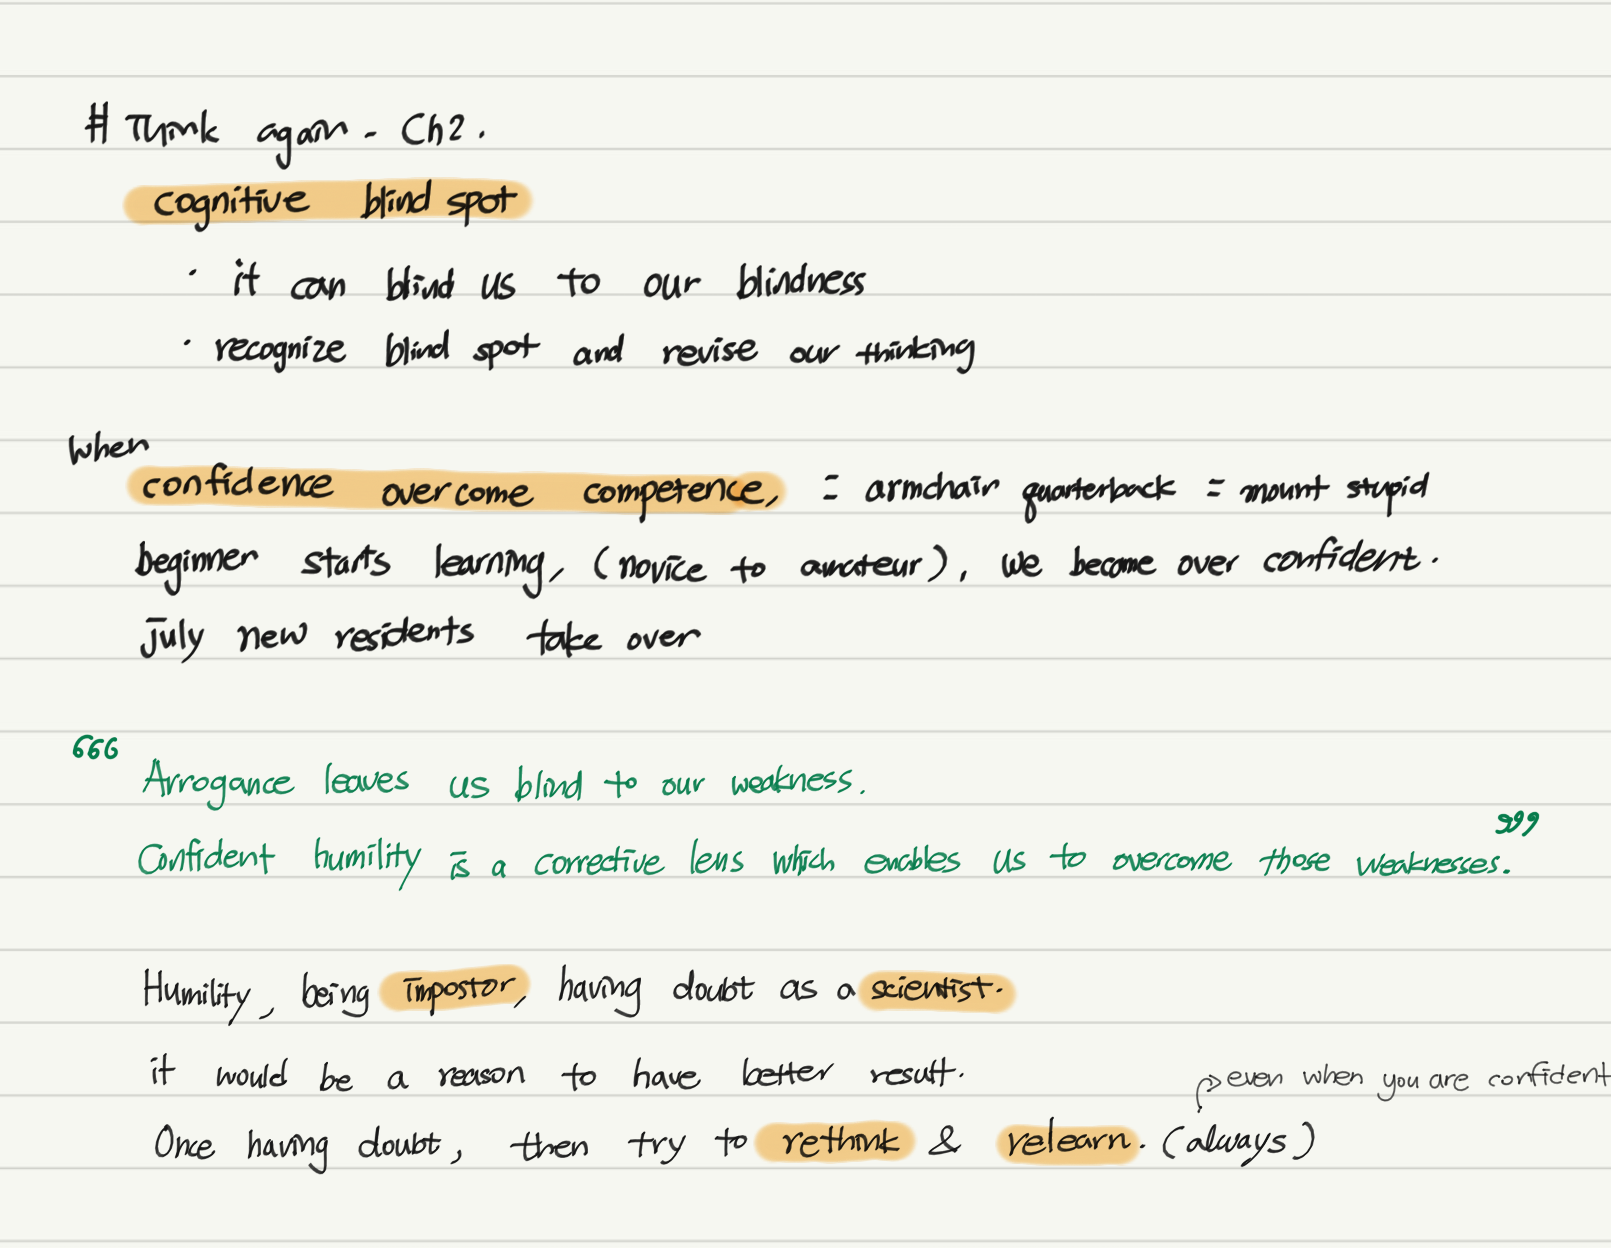 # Think again - Ch2.
cognitive blind spot
· it can blind us to our blindness
· recognize blind spot and revise our thinking
when
confidence overcome competence, = armchair quarterback = mount stupid
beginner starts learning, (novice to amateur), we become over confident.
July new residents take over
666
Arrogance leaves us blind to our weakness.
999
Confident humility is a corrective lens which enables us to overcome those weaknesses.
Humility, being impostor, having doubt as a scientist.
it would be a reason to have better result.
even when you are confident
Once having doubt, then try to rethink & relearn. (always)